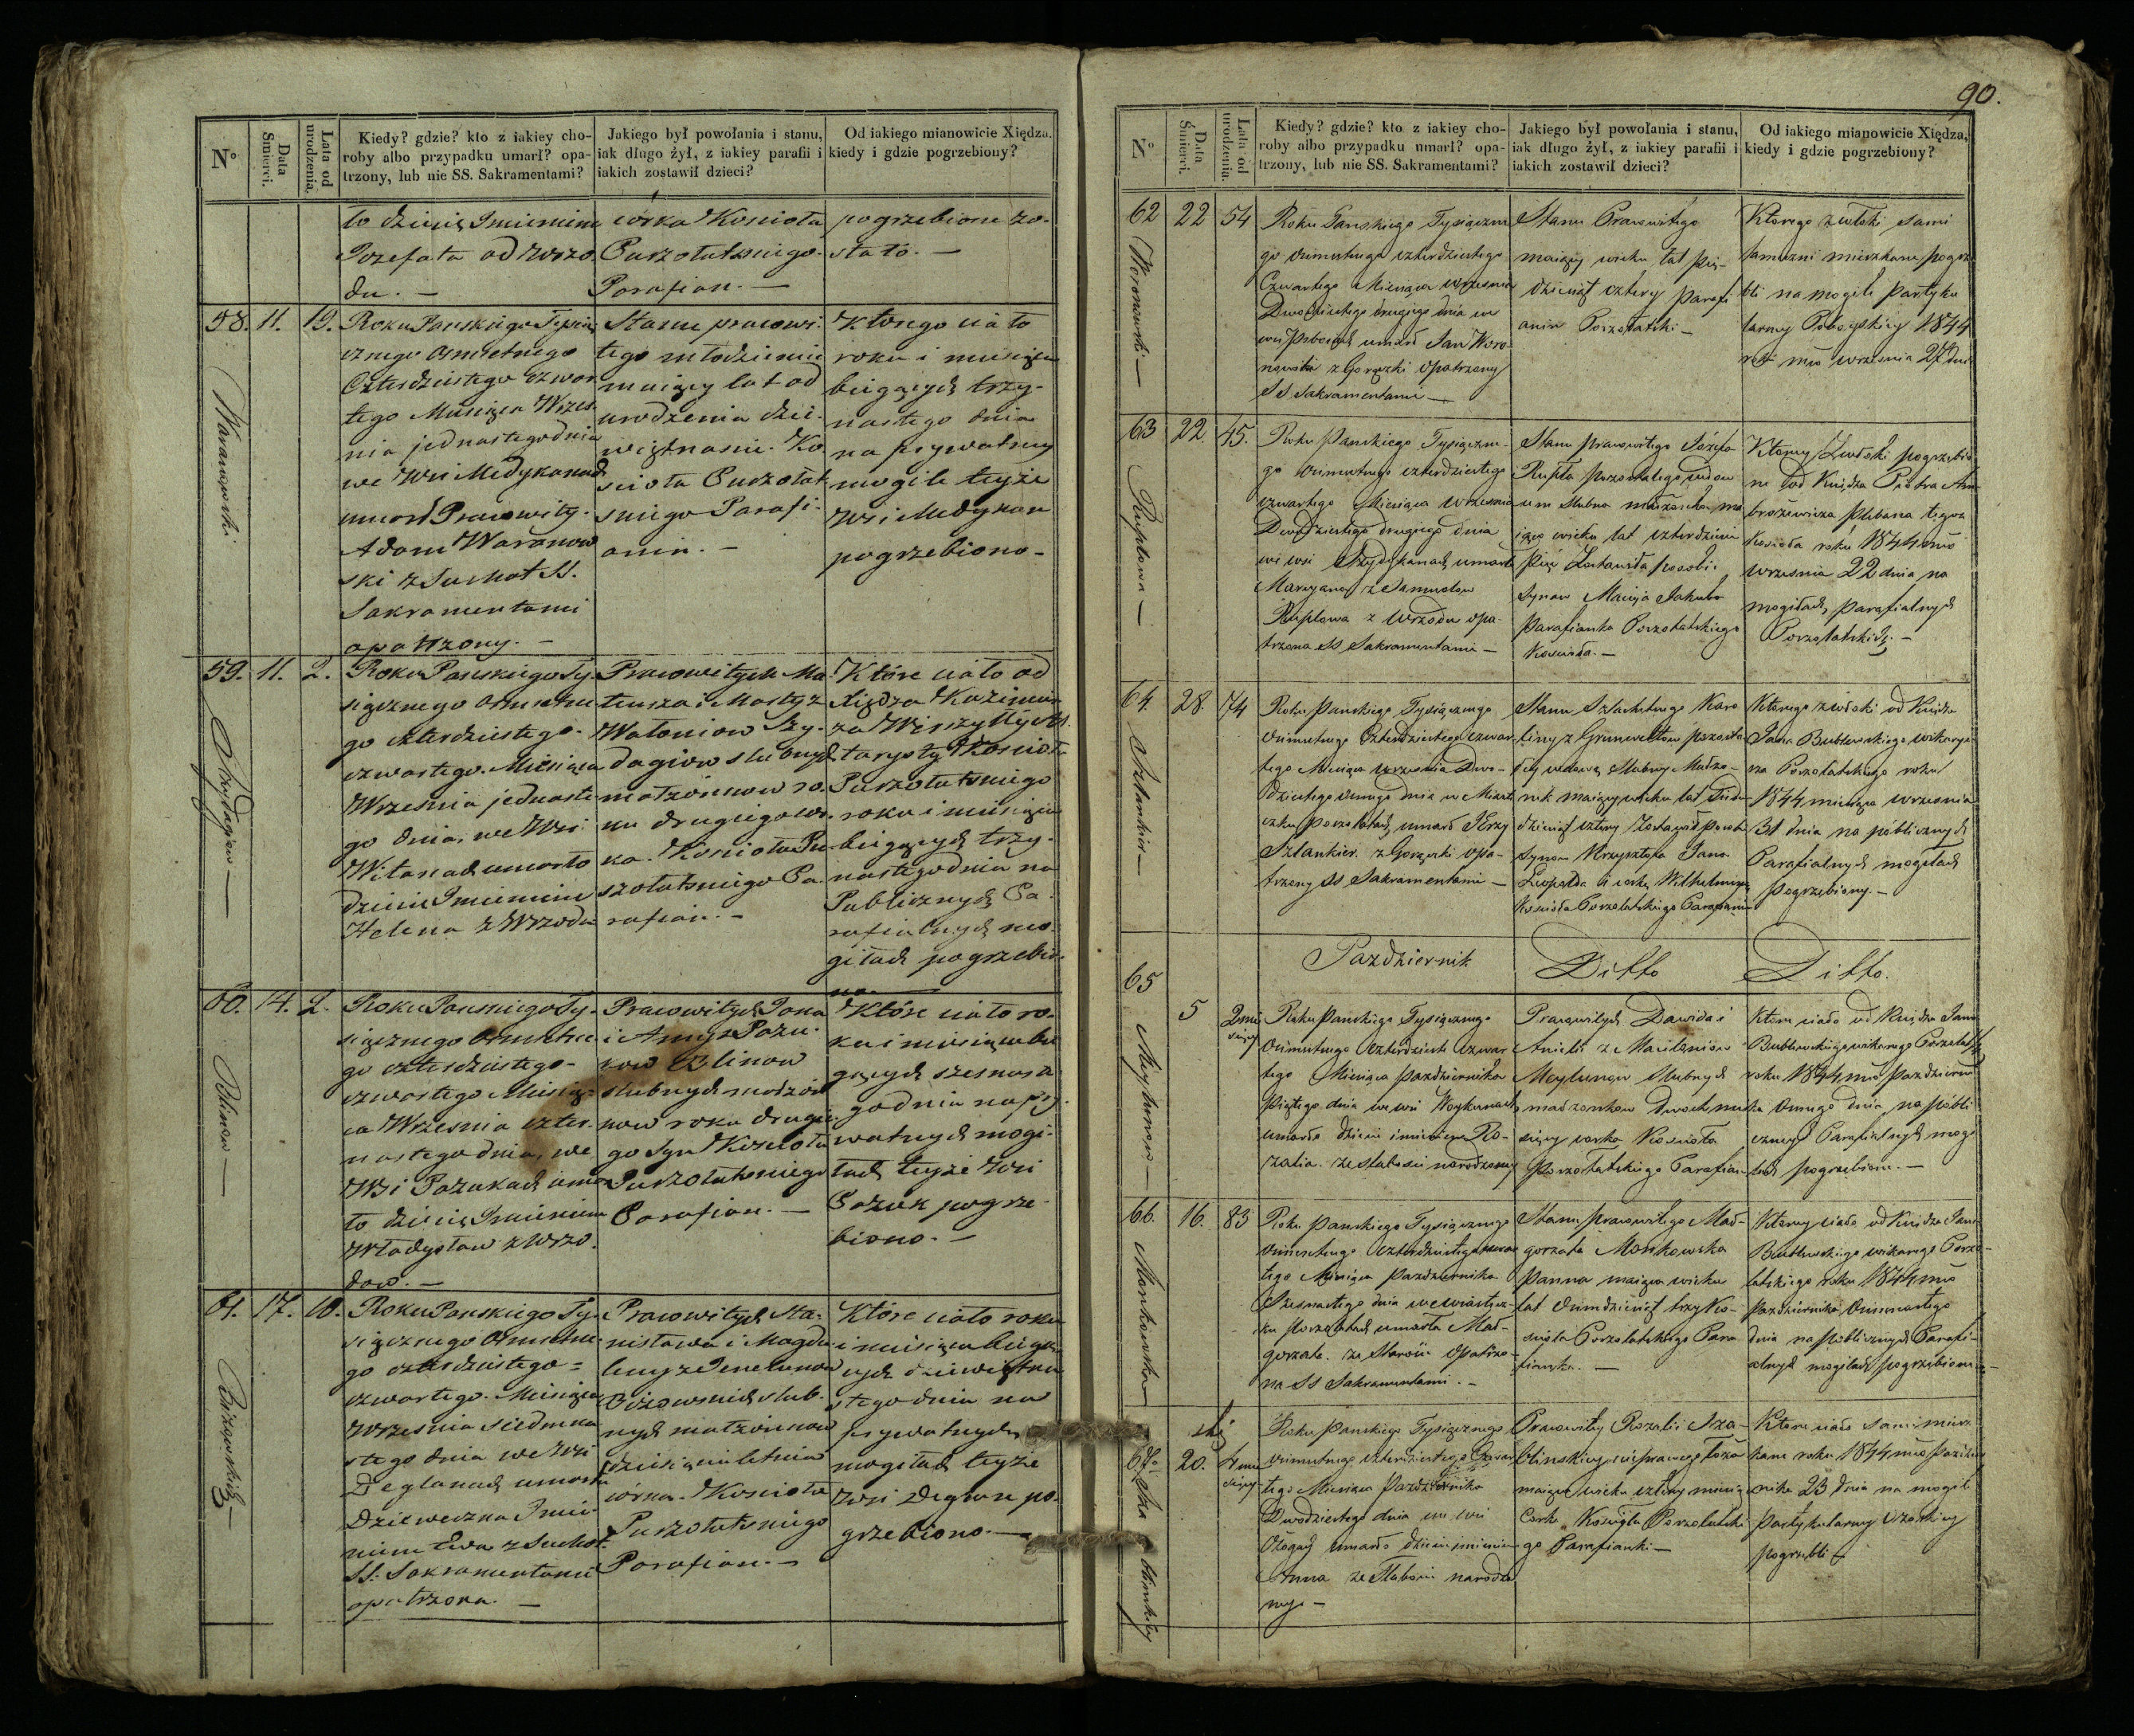 90.
N°
Data Smierci.
Lata od urodzenia.
Kiedy? gdzie? kto z iakiey cho-
roby albo przypadku umarł? opa-
trzony, lub nie SS. Sakramentami?
Jakiego był powołania i stanu,
iak długo żył, z iakiey parafii i
iakich zostawił dzieci?
Od iakiego mianowicie Xiędza,
kiedy i gdzie pogrzebiony?
to dziecię Imieniem
Jozefata od Wrzo
du. —
córka Kościoła
Puszołatskiego
Parafian. —
pogrzebione zo-
stało. —
58. 11. 19.
Waranowski
Roku Pańskiego Tysią
cznego Osmsetnego
Czterdziestego czwar
tego Miesiąca Wrześ
nia jednastego dnia
we Wsi Medykanach
umarł Pracowity
Adam Waranow
ski z Suchot SS.
Sakramentami
opatrzony. —
Stanu pracowi-
tego młodzieniec
maiący lat od
urodzenia dzie-
więtnaście. Ko
ścioła Puszołat
skiego Parafi-
anin. —
Którego ciało
roku i miesiąca
bieżących trzy-
nastego dnia
na prywatney
mogile teyże
Wsi Medykan
pogrzebiono -
59. 11. 2.
Roku Pańskiego Ty-
siącznego Osmsetne
go czterdziestego-
czwartego Miesiąca
Września jednaste
go dnia, we Wsi
umarło
dziecie Imieniem
Helena z Wrzodu
Pracowitych Ma
teusza i Marty z
dagiow slubnych
małżonkow ro-
ku drugiego cór-
ka. Kościoła Pu-
szołatskiego Pa-
rafian. -
Które ciało od
Xiędza Kazimie
rza
tarysty Kościoła
Puszołatskiego
roku i miesiąca
bieżących trzy-
nastego dnia na
Publicznych Pa-
rafialnych mo-
giłach pogrzebio-
no.
60. 14. 2.
Blinow —
Roku Pańskiego Ty-
siącznego Osmsetne
go czterdziestego-
czwartego Miesią-
ca Września czter-
nastego dnia, we
Wsi Pożukach umar
ło dziecię Imieniem
Władysław z Wrzo-
dow. —
Pracowitych Jana
i Anny z Pożu-
kow Blinow
slubnych małżon
kow roku drugie-
go Syn Kościoła
Puszołatskiego
Parafian. —
Które ciało ro-
ku i miesiąca bie
żących szesnaste
go dnia na pry-
watnych mogi-
łach teyże Wsi
Pożuk pogrze-
biono. —
61. 17. 10.
Roku Pańskiego Ty-
siącznego Osmsetne
go czterdziestego=
czwartego. Miesiąca
Września siedmna
stego dnia we Wsi
Deglanach umarła
Dziewczka Imie-
niem Ewa z Suchot
SS. Sakramentami
opatrzona. —
Pracowitych Sta-
nisława i Magda
leny
slub-
nych małżonkow
dziesięcioletnia
córka. Kościoła
Puszołatskiego
Parafian. —
Które ciało roku
i miesiąca bieżą-
cych dziewiętna
stego dnia na
prywatnych
mogiłach teyże
Wsi Deglan po-
grzebiono. —
N°
Data Smierci.
Lata od urodzenia.
Kiedy? gdzie? kto z iakiey cho-
roby albo przypadku umarł? opa-
trzony, lub nie SS. Sakramentami?
Jakiego był powołania i stanu,
iak długo żył, z iakiey parafii i
iakich zostawił dzieci?
Od iakiego mianowicie Xiędza,
kiedy i gdzie pogrzebiony?
62 22 54
Woronowski —
Roku Pańskiego Tysiączne
go osimsetnego czterdziestego
Czwartego Miesiąca września
Dwódziestego drugiego dnia we
wsi umarł Jan Woro
nowski z Gorączki opatrzony
SS Sakramentami —
Stanu Pracowitego
maiący wieku lat pię-
dziesiąt cztery parafi
anin Poszołatski —
Ktorego zwłoki sami
tameczni mieszkańcy pogrze
bli na mogile partyku
larney 1844
roku mca września 27 dnia
63 22 45.
Ruplowa —
Roku Pańskiego Tysiączne-
go osimsetnego czterdziestego
czwartego Miesiąca września
Dwódziestego drugiego dnia
we wsi umarła
Maryanna z
Ruplowa z wrzodu opa-
trzona SS Sakramentami —
Stanu pracowitego Józefa
Rupla pozostałego wdow
cem slubna małżonka ma
iąca wieku lat czterdzieści
Pięć Zostawiła po sobie
Synow Macieja Jakuba
Parafianka Poszołatskiego
Kościoła. —
Ktorey Zwłoki pogrzebio
ne od Księdza Piotra Am
brożewicza Plebana tegoż
Kościoła roku 1844 mca
września 22 dnia na
mogiłach parafialnych
Poszołatskich. —
64. 28. 74
Szlankier —
Roku Pańskiego Tysiącznego
Osimsetnego Czterdziestego czwar
tego Miesiąca września Dwó-
dziestego osmego dnia w Miaste
czku Poszołatach umarł Jerzy
Szlankier z Gorączki opa-
trzony SS Sakramentami —
Stanu Szlachetnego Karo
liny z Grunwaltow pozosta
łey wdową slubny Małżo-
nek maiący wieku lat Siedm
dziesiąt cztery Zostawił po sobie
Synow Krzysztofa Jana
Leopolda i córkę Wilhelminę
Kościoła Poszołatskiego Parafianin
Ktorego zwłoki od Księdza
Jana Bublewskiego wikarye
na Poszołatskiego roku
1844 miesiąca września
31 dnia na póblicznych
Parafialnych mogiłach
pogrzebiony. —
Pazdziernik
Ditto
Ditto.
65 5 2 mie
sięcy
Meylunow —
Roku Pańskiego Tysiącznego
Osimsetnego Czterdziesto czwar
tego Miesiąca pazdziernika
Piątego dnia we wsi
umarło dziecie imieniem Ro-
zalia. ze słabości narodzoney
Pracowitych Dawida i
Anieli z
Meylunow Slubnych
małżonkow Dwoch mie
sięcy corka Kościoła
Poszołatskiego Parafian
Ktore ciało od Księdza Jana
Bublewskiego wikarego Poszołat
roku 1844 mca pazdzierni
ka osmego dnia na póbli
cznych Parafialnych mogi
łach pogrzebione. —
66. 16. 83
Monkowska
Roku Pańskiego Tysiącznego
Osimsetnego Czterdziestego czwar
tego Miesiąca pazdziernika
Szesnastego dnia w miastecz-
ku Poszołatach umarła Mał-
gorzata. ze starości opatrzo-
na SS Sakramentami. —
Stanu pracowitego Mał-
gorzata Monkowska
panna maiąca wieku
lat osimdziesiąt trzy Ko-
ścioła Poszołatskiego Para
fianka. —
Ktorey ciało od Księdza Jana
Bublewskiego wikarego Poszo-
łatskiego roku 1844 mca
pazdziernika Osimnastego
dnia na póblicznych Parafi-
alnych mogiłach pogrzebione —
67. 20. 4 mie
sięcy
Roku Pańskiego Tysiącznego
osimsetnego czterdziestego Czwar
tego Miesiąca Pazdziernika
Dwódziestego dnia we wsi
umarło dziecie imieniem
Anna ze słabości narodzo
nego —
Pracowitey Rozalii Sza-
blinskiey nieprawego łoża
maiąca wieku cztery miesią
Corka Kościoła Poszołatski
go Parafianki —
Ktore ciało sami miesz
kańc roku 1844 mca pazdzier
nika 23 dnia na mogile
partykularney
pogrzebli —